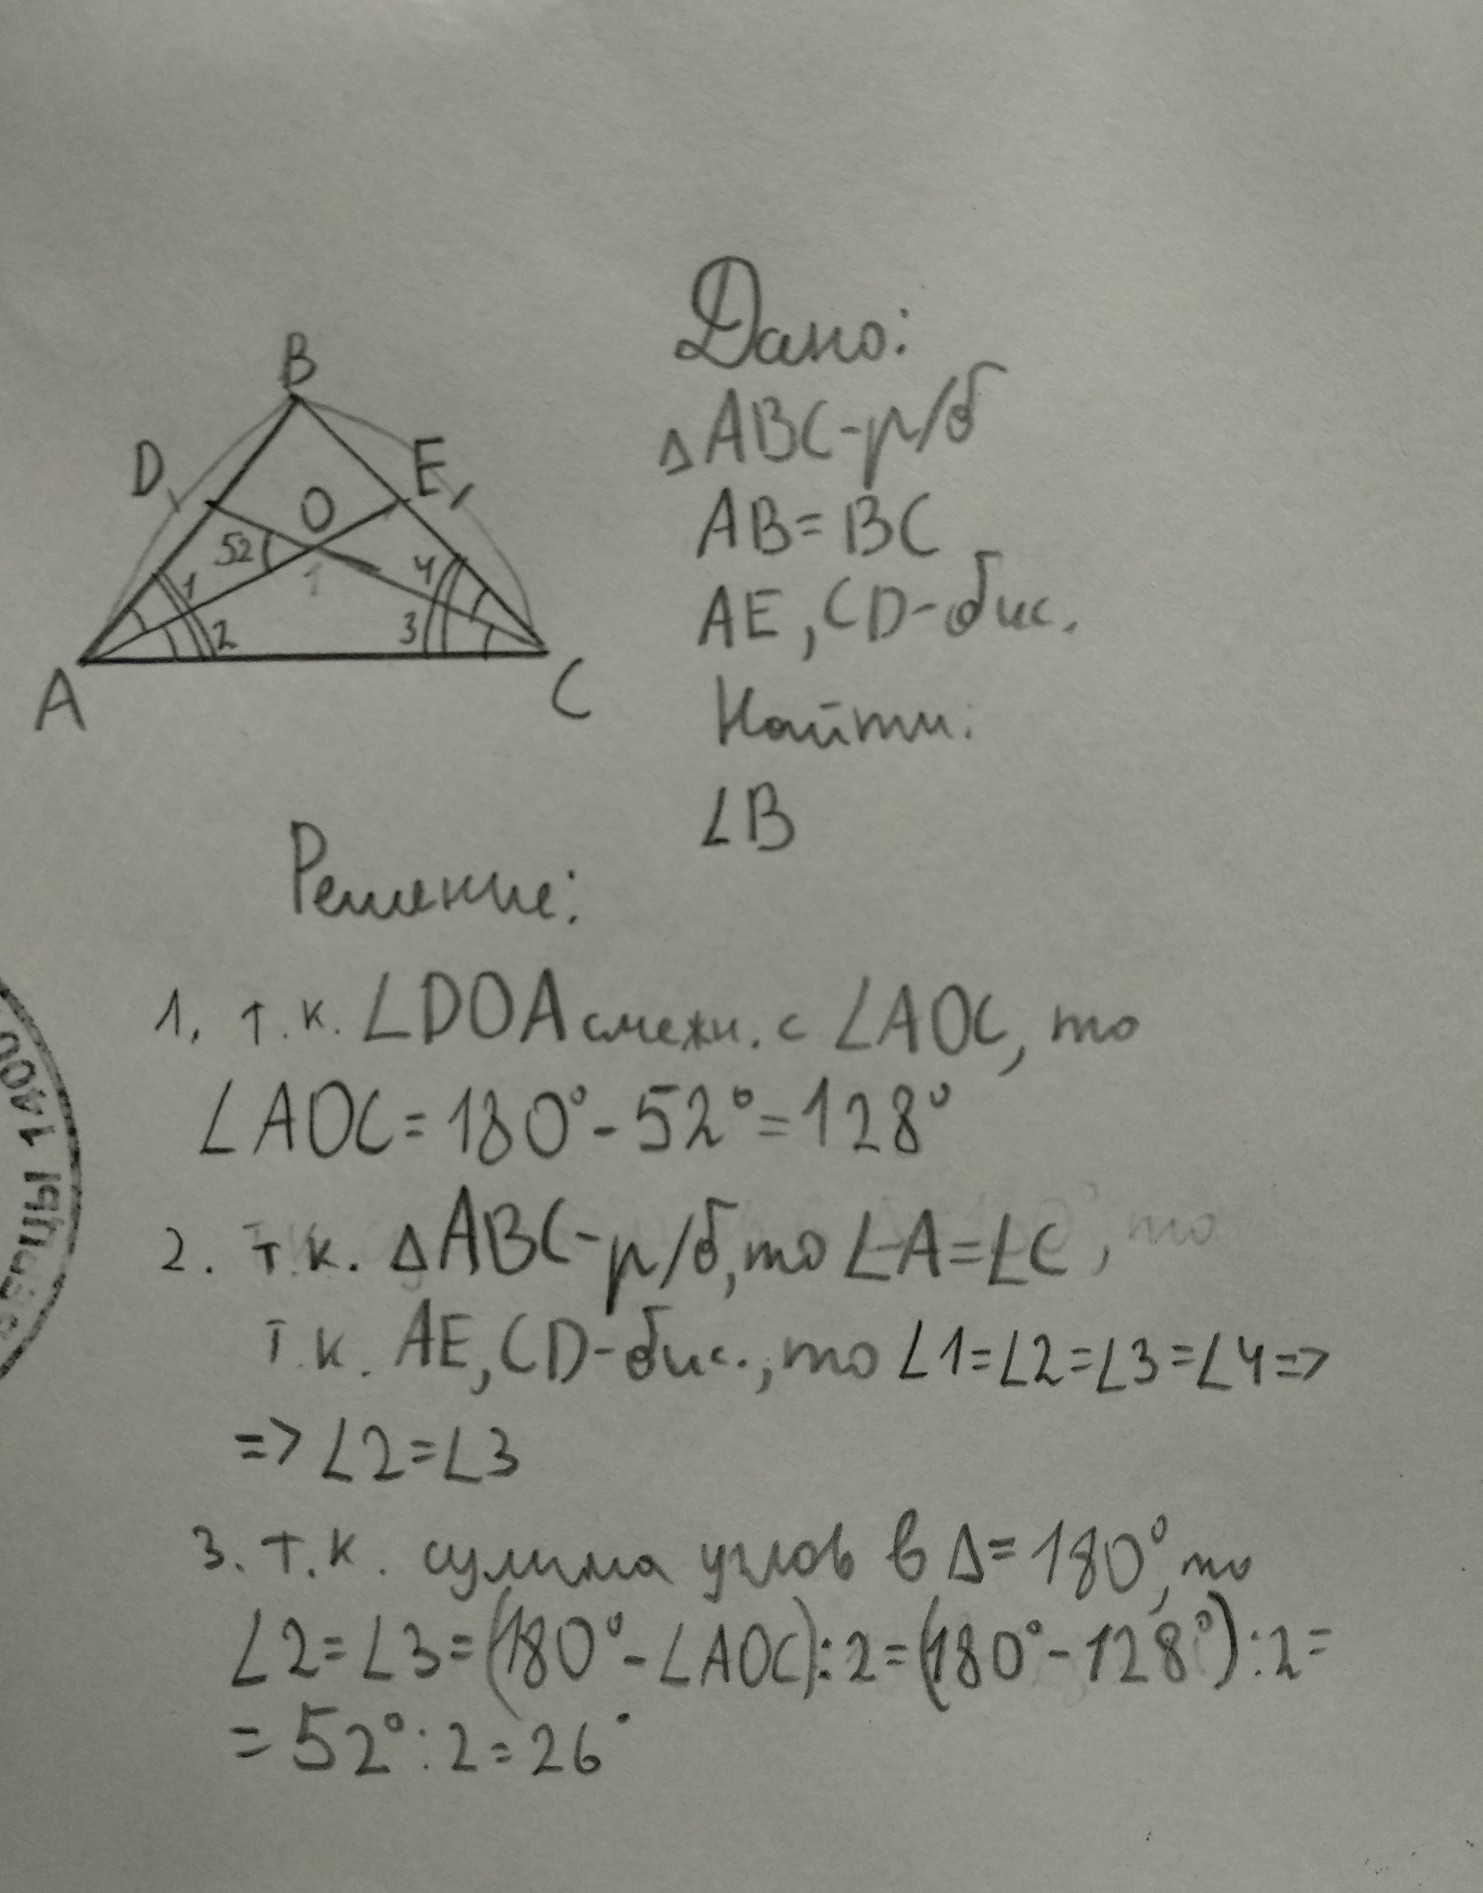 B
D
E
O
52
1
1
4
2
3
A
C
Дано:
Δ ABC-р/б
AB = BC
AE, CD-бис.
Найти:
∠B
Решение:
1. т.к. ∠DOA смежн. с ∠AOC, то
∠AOC = 180° - 52° = 128°
2. т.к. Δ ABC-р/б, то ∠A = ∠C, то
т.к. AE, CD-бис., то ∠1=∠2=∠3=∠4 =>
=> ∠2 = ∠3
3. т.к. сумма углов в Δ = 180°, то
∠2 = ∠3 = (180° - ∠AOC) : 2 = (180° - 128°) : 2 =
= 52° : 2 = 26°
1400